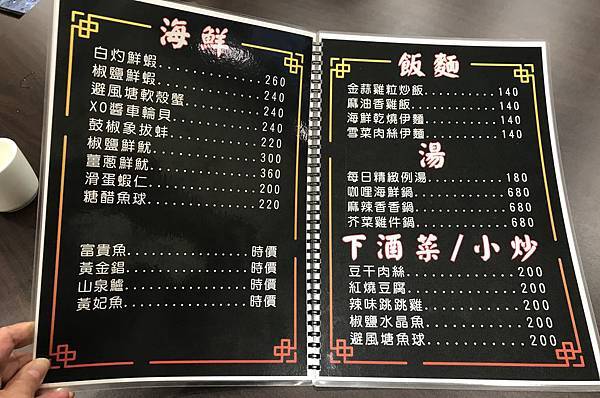 海鮮
白灼鮮蝦..............260
椒鹽鮮蝦..............240
避風塘軟殼蟹..........240
XO醬車輪貝............240
鼓椒象拔蚌............220
椒鹽鮮魷..............300
薑蔥鮮魷..............360
滑蛋蝦仁..............200
糖醋魚球..............220
富貴魚..............時價
黃金鯧..............時價
山泉鱸..............時價
黃妃魚..............時價
飯麵
金蒜雞粒炒飯..........140
麻油香雞飯............140
海鮮乾燒伊麵..........140
雪菜肉絲伊麵..........140
湯
每日精緻例湯..........180
咖哩海鮮鍋............680
麻辣香香鍋............680
芥菜雞件鍋............680
下酒菜/小炒
豆干肉絲..............200
紅燒豆腐..............200
辣味跳跳雞............200
椒鹽水晶魚............200
避風塘魚球............200